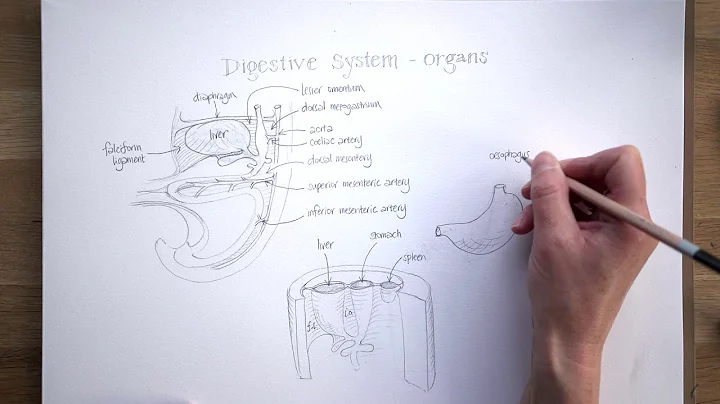 Digestive System - organs
lesser omentum
diaphragm
dorsal mesogastrium
liver
aorta
coeliac artery
falciform
ligament
dorsal mesentery
superior mesenteric artery
inferior mesenteric artery
oesophagus
liver
stomach
spleen
f.l.
l.o.